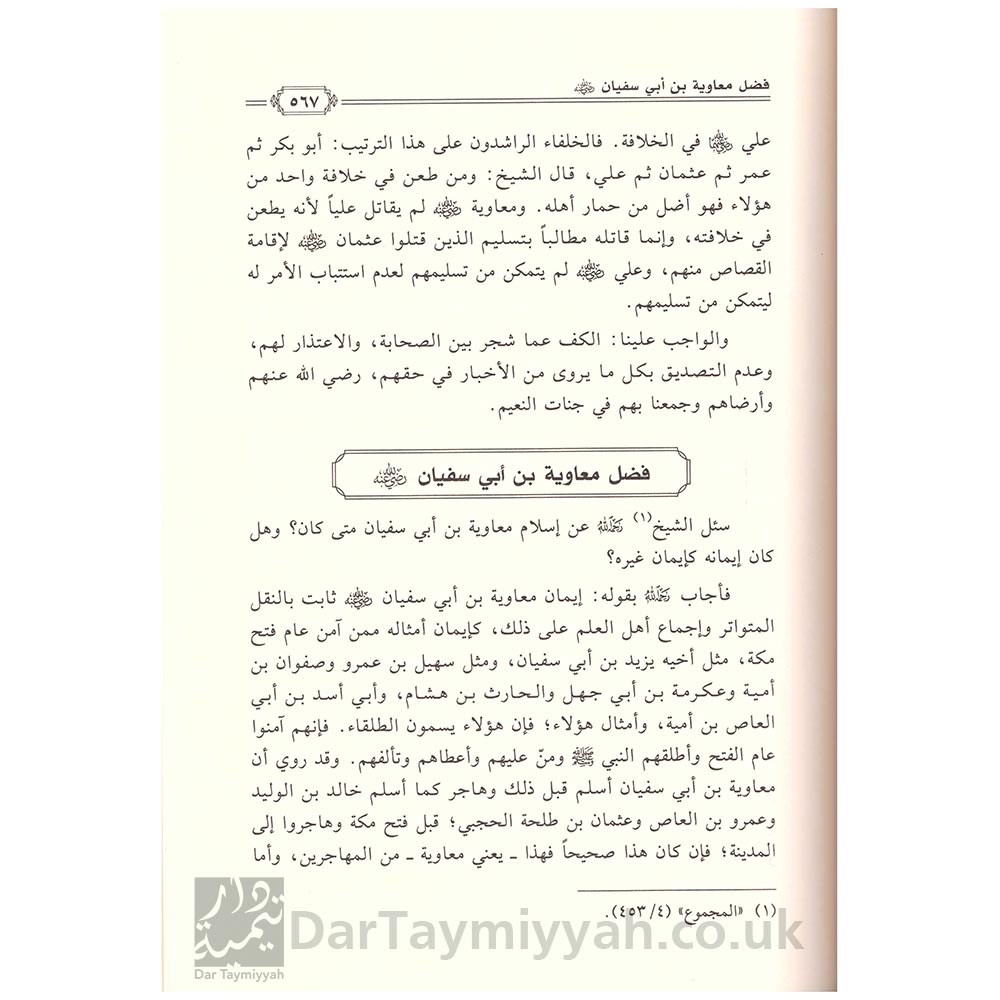 فضل معاوية بن أبي سفيان رضي الله عنه
٥٦٧
علي رضي الله عنهما في الخلافة. فالخلفاء الراشدون على هذا الترتيب: أبو بكر ثم
عمر ثم عثمان ثم علي، قال الشيخ: ومن طعن في خلافة واحد من
هؤلاء فهو أضل من حمار أهله. ومعاوية رضي الله عنه لم يقاتل علياً لأنه يطعن
في خلافته، وإنما قاتله مطالباً بتسليم الذين قتلوا عثمان رضي الله عنه لإقامة
القصاص منهم، وعلي رضي الله عنه لم يتمكن من تسليمهم لعدم استتباب الأمر له
ليتمكن من تسليمهم.
والواجب علينا: الكف عما شجر بين الصحابة، والاعتذار لهم،
وعدم التصديق بكل ما يروى من الأخبار في حقهم، رضي الله عنهم
وأرضاهم وجمعنا بهم في جنات النعيم.
فضل معاوية بن أبي سفيان رضي الله عنه
سئل الشيخ(١) رحمه الله عن إسلام معاوية بن أبي سفيان متى كان؟ وهل
كان إيمانه كإيمان غيره؟
فأجاب رحمه الله بقوله: إيمان معاوية بن أبي سفيان رضي الله عنه ثابت بالنقل
المتواتر وإجماع أهل العلم على ذلك، كإيمان أمثاله ممن آمن عام فتح
مكة، مثل أخيه يزيد بن أبي سفيان، ومثل سهيل بن عمرو وصفوان بن
أمية وعكرمة بن أبي جهل والحارث بن هشام، وأبي أسد بن أبي
العاص بن أمية، وأمثال هؤلاء؛ فإن هؤلاء يسمون الطلقاء. فإنهم آمنوا
عام الفتح وأطلقهم النبي ﷺ ومنّ عليهم وأعطاهم وتألفهم. وقد روي أن
معاوية بن أبي سفيان أسلم قبل ذلك وهاجر كما أسلم خالد بن الوليد
وعمرو بن العاص وعثمان بن طلحة الحجبي؛ قبل فتح مكة وهاجروا إلى
المدينة؛ فإن كان هذا صحيحاً فهذا ـ يعني معاوية ـ من المهاجرين، وأما
(١) «المجموع» (٤/ ٤٥٣).
دار تيمية
Dar Taymiyyah
DarTaymiyyah.co.uk